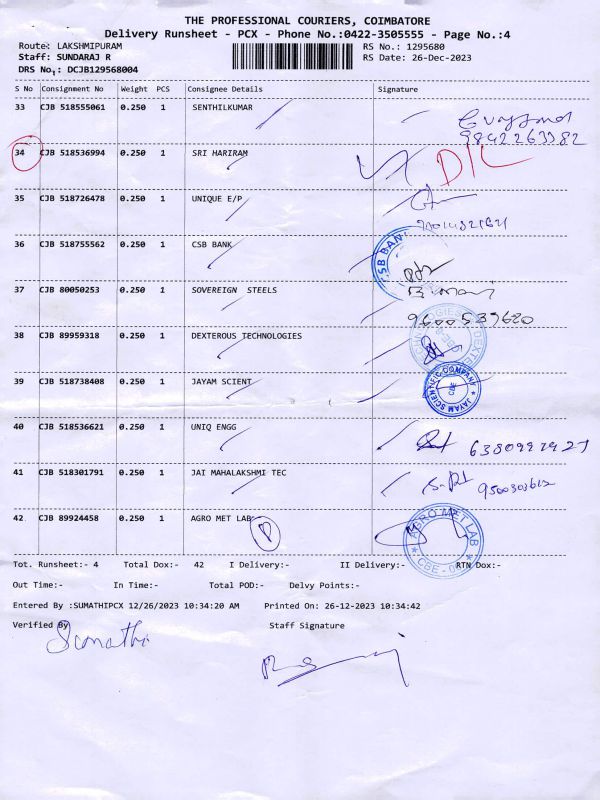 THE PROFESSIONAL COURIERS, COIMBATORE
Delivery Runsheet - PCX - Phone No.:0422-3505555 - Page No.:4
Route: LAKSHMIPURAM RS No.: 1295680
Staff: SUNDARAJ R RS Date: 26-Dec-2023
DRS No.: DCJB129568004
S No Consignment No Weight PCS Consignee Details Signature
33 CJB 518555061 0.250 1 SENTHILKUMAR
9842263382
34 CJB 518536994 0.250 1 SRI HARIRAM D/L
35 CJB 518726478 0.250 1 UNIQUE E/P
36 CJB 518755562 0.250 1 CSB BANK CSB BANK
37 CJB 80050253 0.250 1 SOVEREIGN STEELS
9600539620
38 CJB 89959318 0.250 1 DEXTEROUS TECHNOLOGIES
39 CJB 518738408 0.250 1 JAYAM SCIENT JAYAM SCIENTIFIC COMPANY CBE
40 CJB 518536621 0.250 1 UNIQ ENGG
41 CJB 518301791 0.250 1 JAI MAHALAKSHMI TEC
42 CJB 89924458 0.250 1 AGRO MET LAB P AGRO MET LAB
Tot. Runsheet:- 4 Total Dox:- 42 I Delivery:- II Delivery:- RTN Dox:-
Out Time:- In Time:- Total POD:- Delvy Points:-
Entered By :SUMATHIPCX 12/26/2023 10:34:20 AM Printed On: 26-12-2023 10:34:42
Verified By Staff Signature
Sumathi